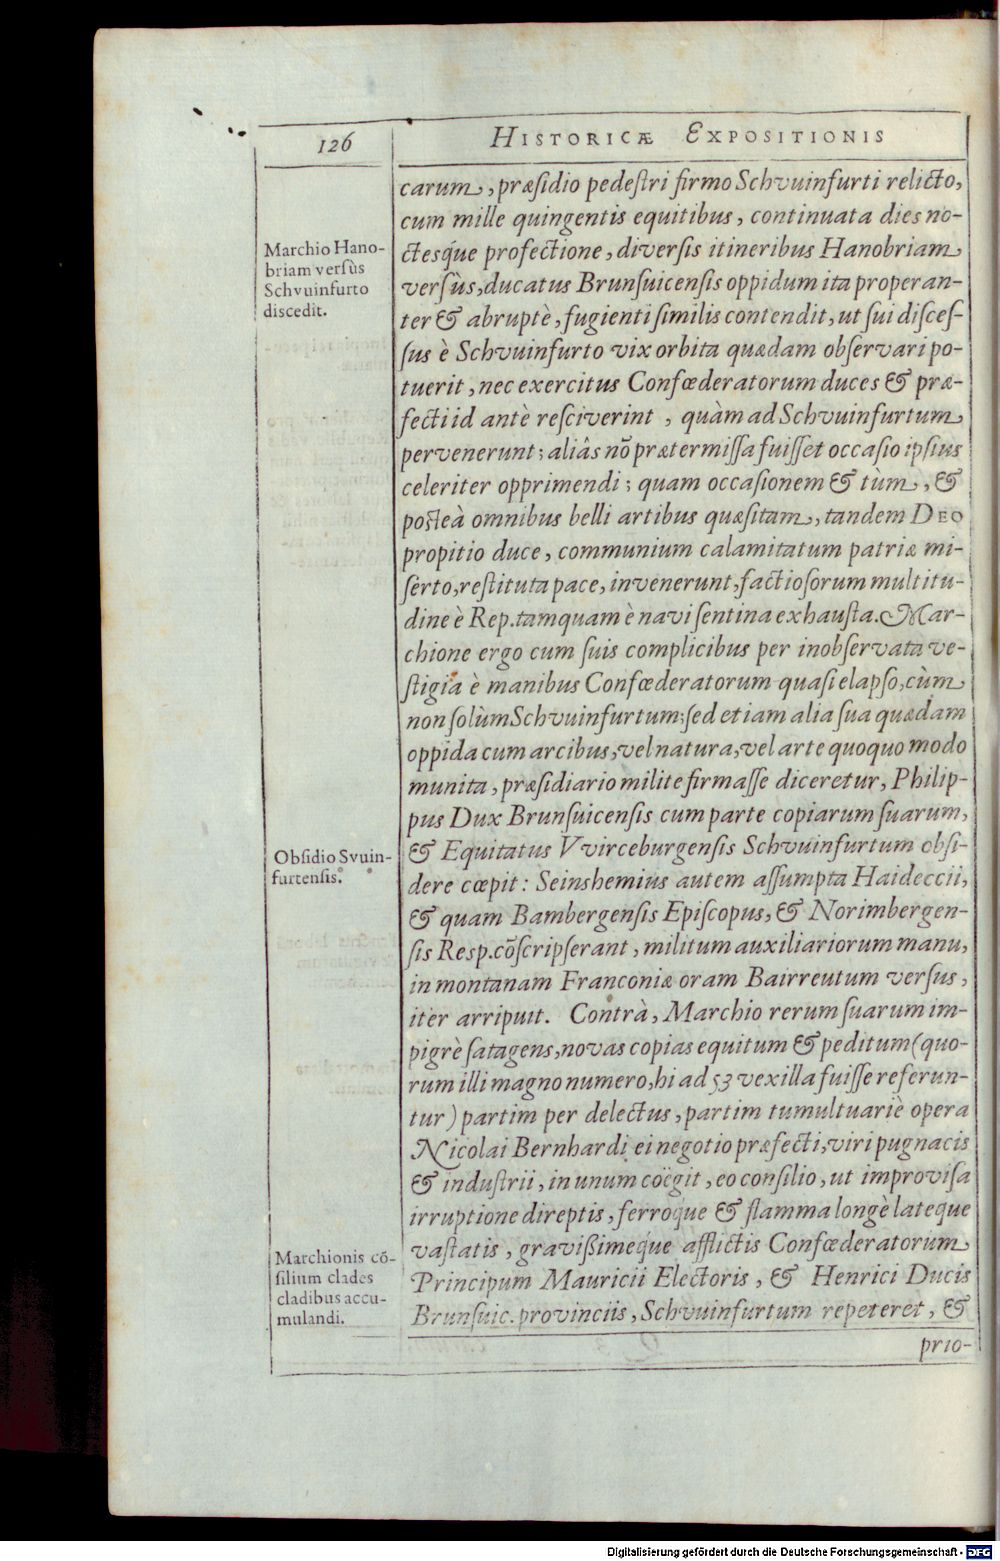 126
HISTORICÆ EXPOSITIONIS
carum, præsidio pedestri firmo Schvuinfurti relicto,
cum mille quingentis equitibus, continuata dies no-
ctesq́ue profectione, diversis itineribus Hanobriam
versùs, ducatus Brunsuicensis oppidum ita properan-
ter & abruptè, fugienti similis contendit, ut sui disces-
sus è Schvuinfurto vix orbita quædam observari po-
tuerit, nec exercitus Confœderatorum duces & præ-
fecti id antè resciverint, quàm ad Schvuinfurtum
pervenerunt; aliâs nõ prætermissa fuisset occasio ipsius
celeriter opprimendi; quam occasionem & tùm, &
posteà omnibus belli artibus quæsitam, tandem DEO
propitio duce, communium calamitatum patriæ mi-
serto, restituta pace, invenerunt, factiosorum multitu-
dine è Rep. tamquam è navi sentina exhausta. Mar-
chione ergo cum suis complicibus per inobservata ve-
stigia è manibus Confœderatorum quasi elapso, cùm
non solùm Schvuinfurtum; sed etiam alia sua quædam
oppida cum arcibus, vel natura, vel arte quoquo modo
munita, præsidiario milite firmasse diceretur, Philip-
pus Dux Brunsuicensis cum parte copiarum suarum,
& Equitatus Vvirceburgensis Schvuinfurtum obsi-
dere cœpit: Seinshemius autem assumpta Haideccii,
& quam Bambergensis Episcopus, & Norimbergen-
sis Resp. cõscripserant, militum auxiliariorum manu,
in montanam Franconiæ oram Bairreutum versus,
iter arripuit. Contrà, Marchio rerum suarum im-
pigrè satagens, novas copias equitum & peditum (quo-
rum illi magno numero, hi ad 53 vexilla fuisse referun-
tur) partim per delectus, partim tumultuariè opera
Nicolai Bernhardi ei negotio præfecti, viri pugnacis
& industrii, in unum coëgit, eo consilio, ut improvisa
irruptione direptis, ferroq́ue & flamma longè lateque
vastatis, gravißimeq́ue afflictis Confœderatorum
Principum Mauricii Electoris, & Henrici Ducis
Brunsuic. provinciis, Schvuinfurtum repeteret, &
prio-
Marchio Hano-
briam versùs
Schvuinfurto
discedit.
Obsidio Svuin-
furtensis.
Marchionis cõ-
silium clades
cladibus accu-
mulandi.
Digitalisierung gefördert durch die Deutsche Forschungsgemeinschaft - DFG